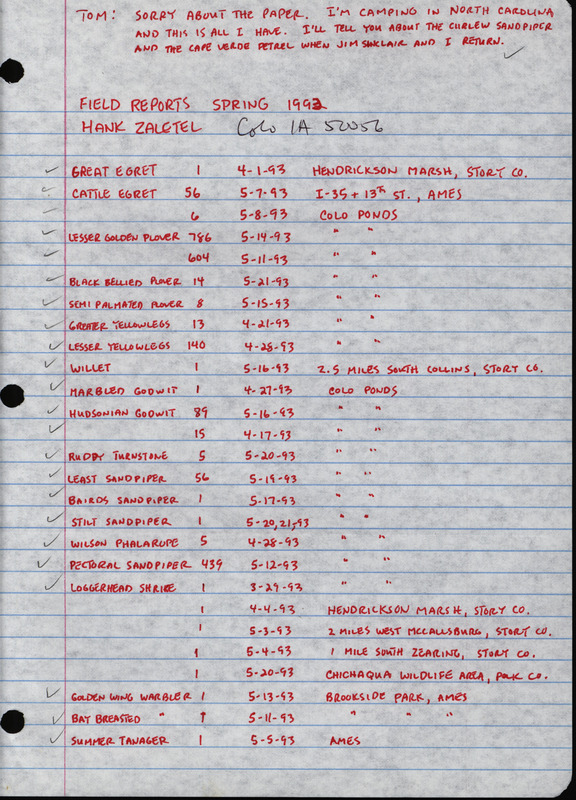 TOM: SORRY ABOUT THE PAPER. I'M CAMPING IN NORTH CAROLINA
AND THIS IS ALL I HAVE. I'LL TELL YOU ABOUT THE CURLEW SANDPIPER
AND THE CAPE VERDE PETREL WHEN JIM SINCLAIR AND I RETURN.
FIELD REPORTS SPRING 1993
HANK ZALETEL COLO IA 50056
GREAT EGRET 1 4-1-93 HENDRICKSON MARSH, STORY CO.
CATTLE EGRET 56 5-7-93 I-35 + 13th ST., AMES
6 5-8-93 COLO PONDS
LESSER GOLDEN PLOVER 786 5-14-93 " "
604 5-11-93 " "
BLACK BELLIED PLOVER 14 5-21-93 " "
SEMI PALMATED PLOVER 8 5-15-93 " "
GREATER YELLOWLEGS 13 4-21-93 " "
LESSER YELLOWLEGS 140 4-28-93 " "
WILLET 1 5-16-93 2.5 MILES SOUTH COLLINS, STORY CO.
MARBLED GODWIT 1 4-27-93 COLO PONDS
HUDSONIAN GODWIT 89 5-16-93 " "
15 4-17-93 " "
RUDDY TURNSTONE 5 5-20-93 " "
LEAST SANDPIPER 56 5-19-93 " "
BAIRDS SANDPIPER 1 5-17-93 " "
STILT SANDPIPER 1 5-20,21,-93 " "
WILSON PHALAROPE 5 4-28-93 " "
PECTORAL SANDPIPER 439 5-12-93 " "
LOGGERHEAD SHRIKE 1 3-29-93 " "
1 4-4-93 HENDRICKSON MARSH, STORY CO.
1 5-3-93 2 MILES WEST MCCALLSBURG, STORY CO.
1 5-4-93 1 MILE SOUTH ZEARING, STORY CO.
1 5-20-93 CHICHAQUA WILDLIFE AREA, POLK CO.
GOLDEN WING WARBLER 1 5-13-93 BROOKSIDE PARK, AMES
BAY BREASTED " 1 5-11-93 " " "
SUMMER TANAGER 1 5-5-93 AMES